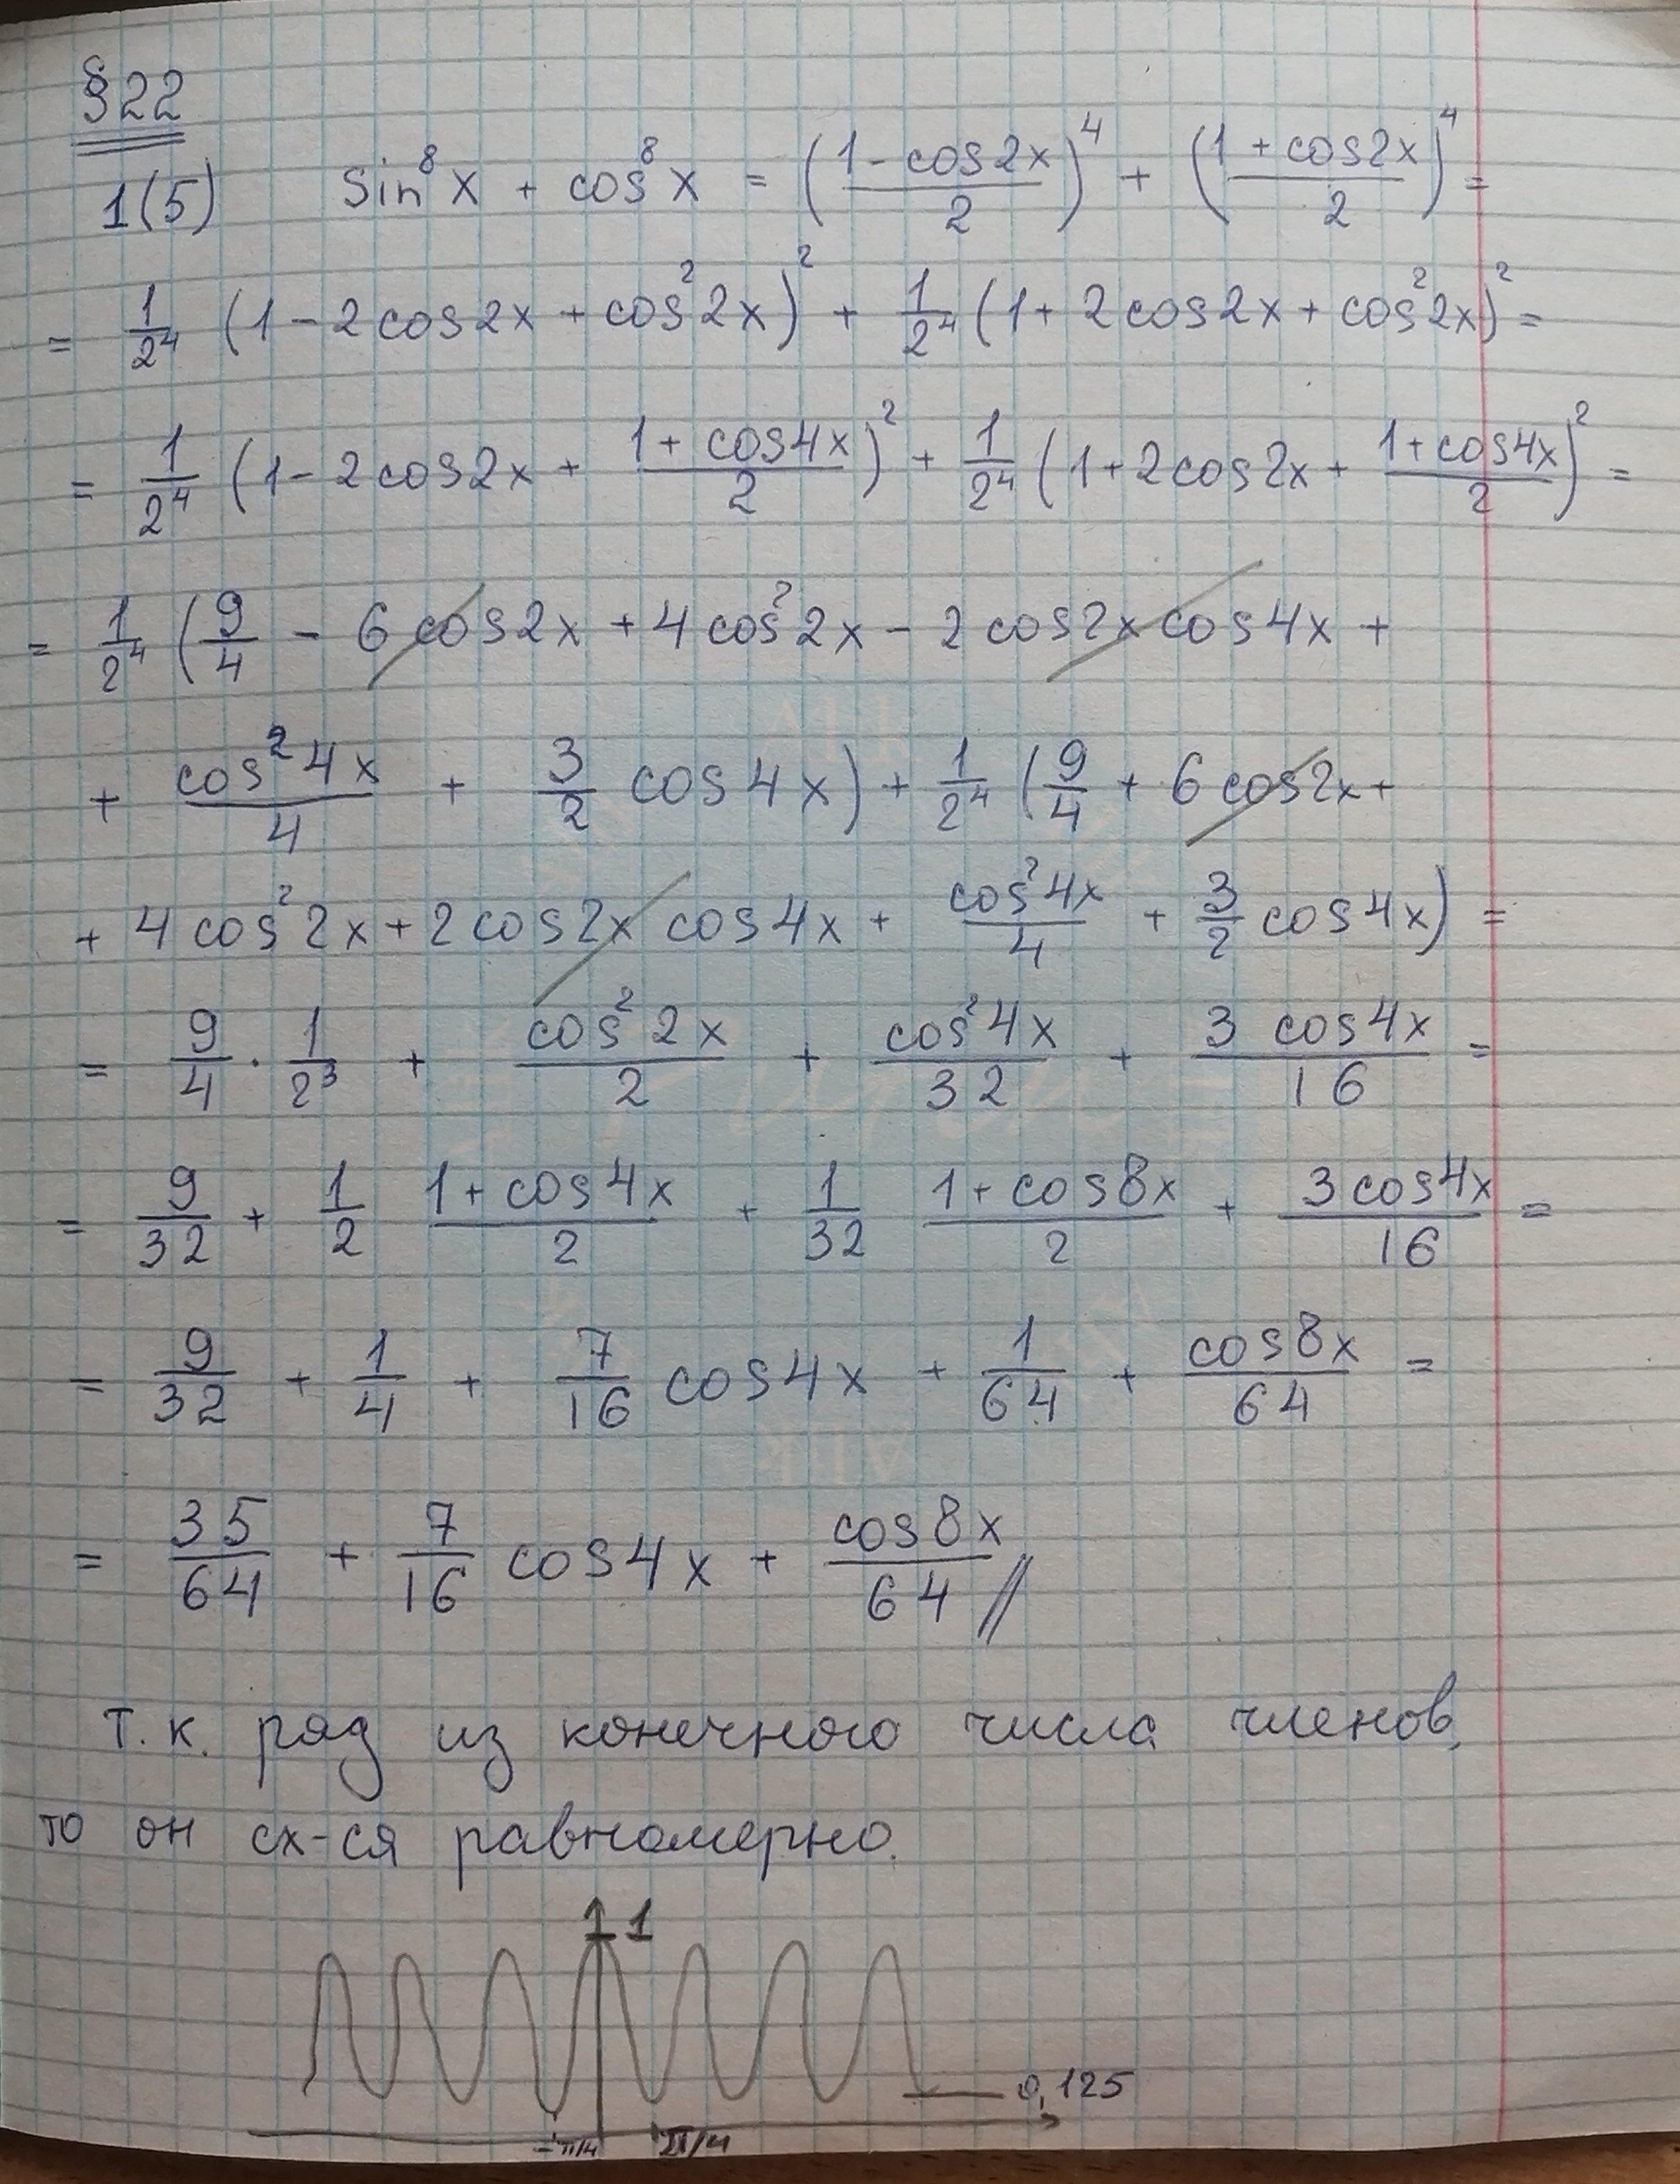 §22
1(5) sin⁸x + cos⁸x = ((1 - cos2x)/2)⁴ + ((1 + cos2x)/2)⁴ =
= 1/2⁴ (1 - 2cos2x + cos²2x)² + 1/2⁴ (1 + 2cos2x + cos²2x)² =
= 1/2⁴ (1 - 2cos2x + (1 + cos4x)/2)² + 1/2⁴ (1 + 2cos2x + (1 + cos4x)/2)² =
= 1/2⁴ (9/4 - 6cos2x + 4cos²2x - 2cos2x cos4x +
+ cos²4x/4 + 3/2 cos4x) + 1/2⁴ (9/4 + 6cos2x +
+ 4cos²2x + 2cos2x cos4x + cos²4x/4 + 3/2 cos4x) =
= 9/4 · 1/2³ + cos²2x/2 + cos²4x/32 + 3cos4x/16 =
= 9/32 + 1/2 (1 + cos4x)/2 + 1/32 (1 + cos8x)/2 + 3cos4x/16 =
= 9/32 + 1/4 + 7/16 cos4x + 1/64 + cos8x/64 =
= 35/64 + 7/16 cos4x + cos8x/64 //
Т.к. ряд из конечного числа членов,
то он сх-ся равномерно.
1
0,125
-π/4 π/4